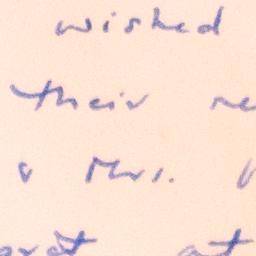 wished
their
& Mrs.
at